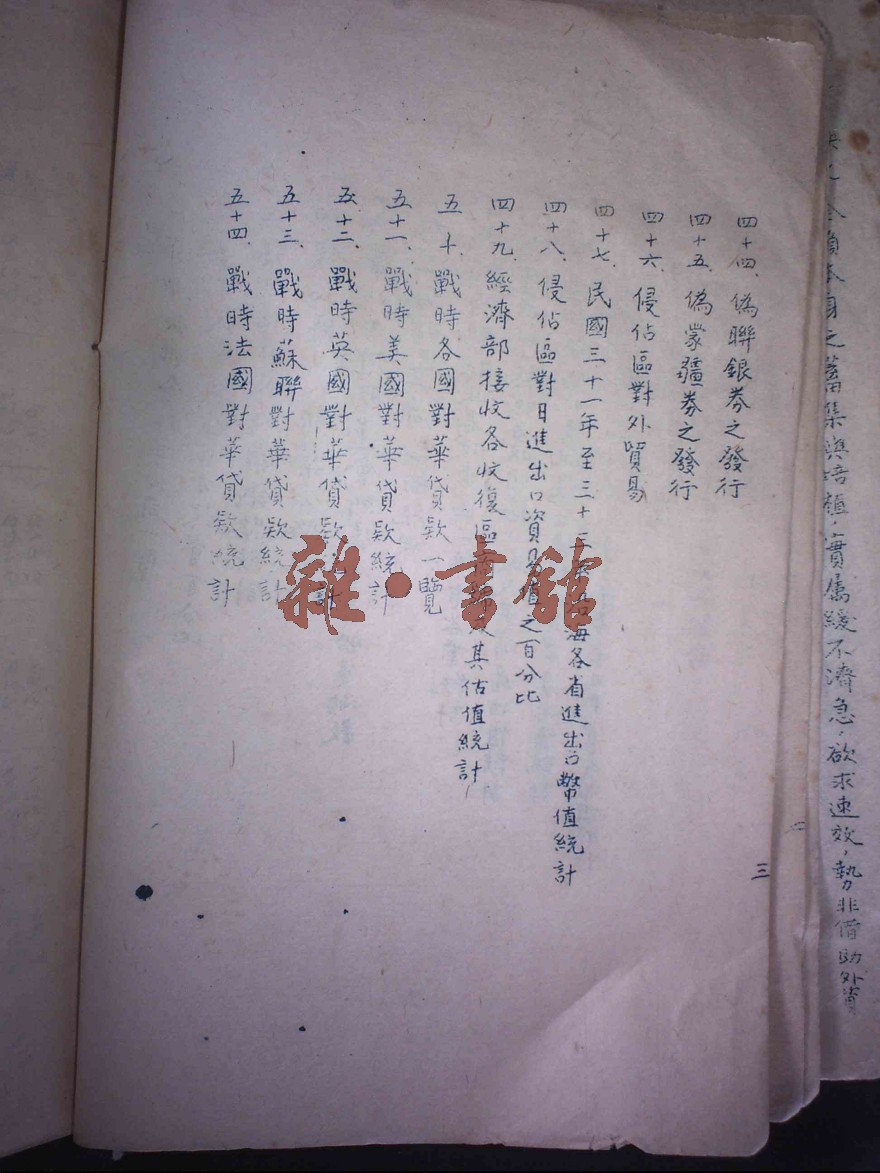 四十四、偽聯銀券之發行
四十五、偽蒙疆券之發行
四十六、侵佔區對外貿易
四十七、民國三十一年至三十三年沿海各省進出口幣值統計
四十八、侵佔區對日進出口貿易值之百分比
四十九、經濟部接收各收復區及其估值統計
五十、戰時各國對華貸款一覽
五十一、戰時美國對華貸款統計
五十二、戰時英國對華貸款統計
五十三、戰時蘇聯對華貸款統計
五十四、戰時法國對華貸款統計
三
二
本身之蓄集與培植，實屬緩不濟急，欲求速效，勢非借助外資
雜·書館